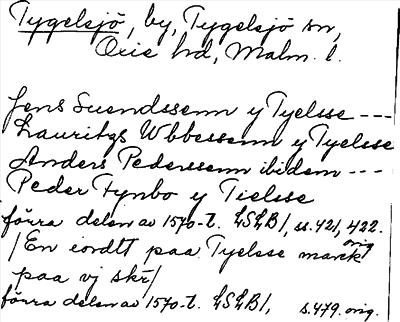 Tygelsjö, by, Tygelsjö sn,
Oxie hd, Malm. l.
Jens Suendssenn y Tyelsse ---
Lauritzs Wbbessenn y Tyelsse
Anders Pederssenn ibidem ---
Peder Fynbo y Tielsse
förra delen av 1570-t. LSLB/, ss. 421, 422. orig.
/En iordtt paa Tyelsse marck
paa vj skr/
förra delen av 1570-t. LSLB/, s. 479. orig.